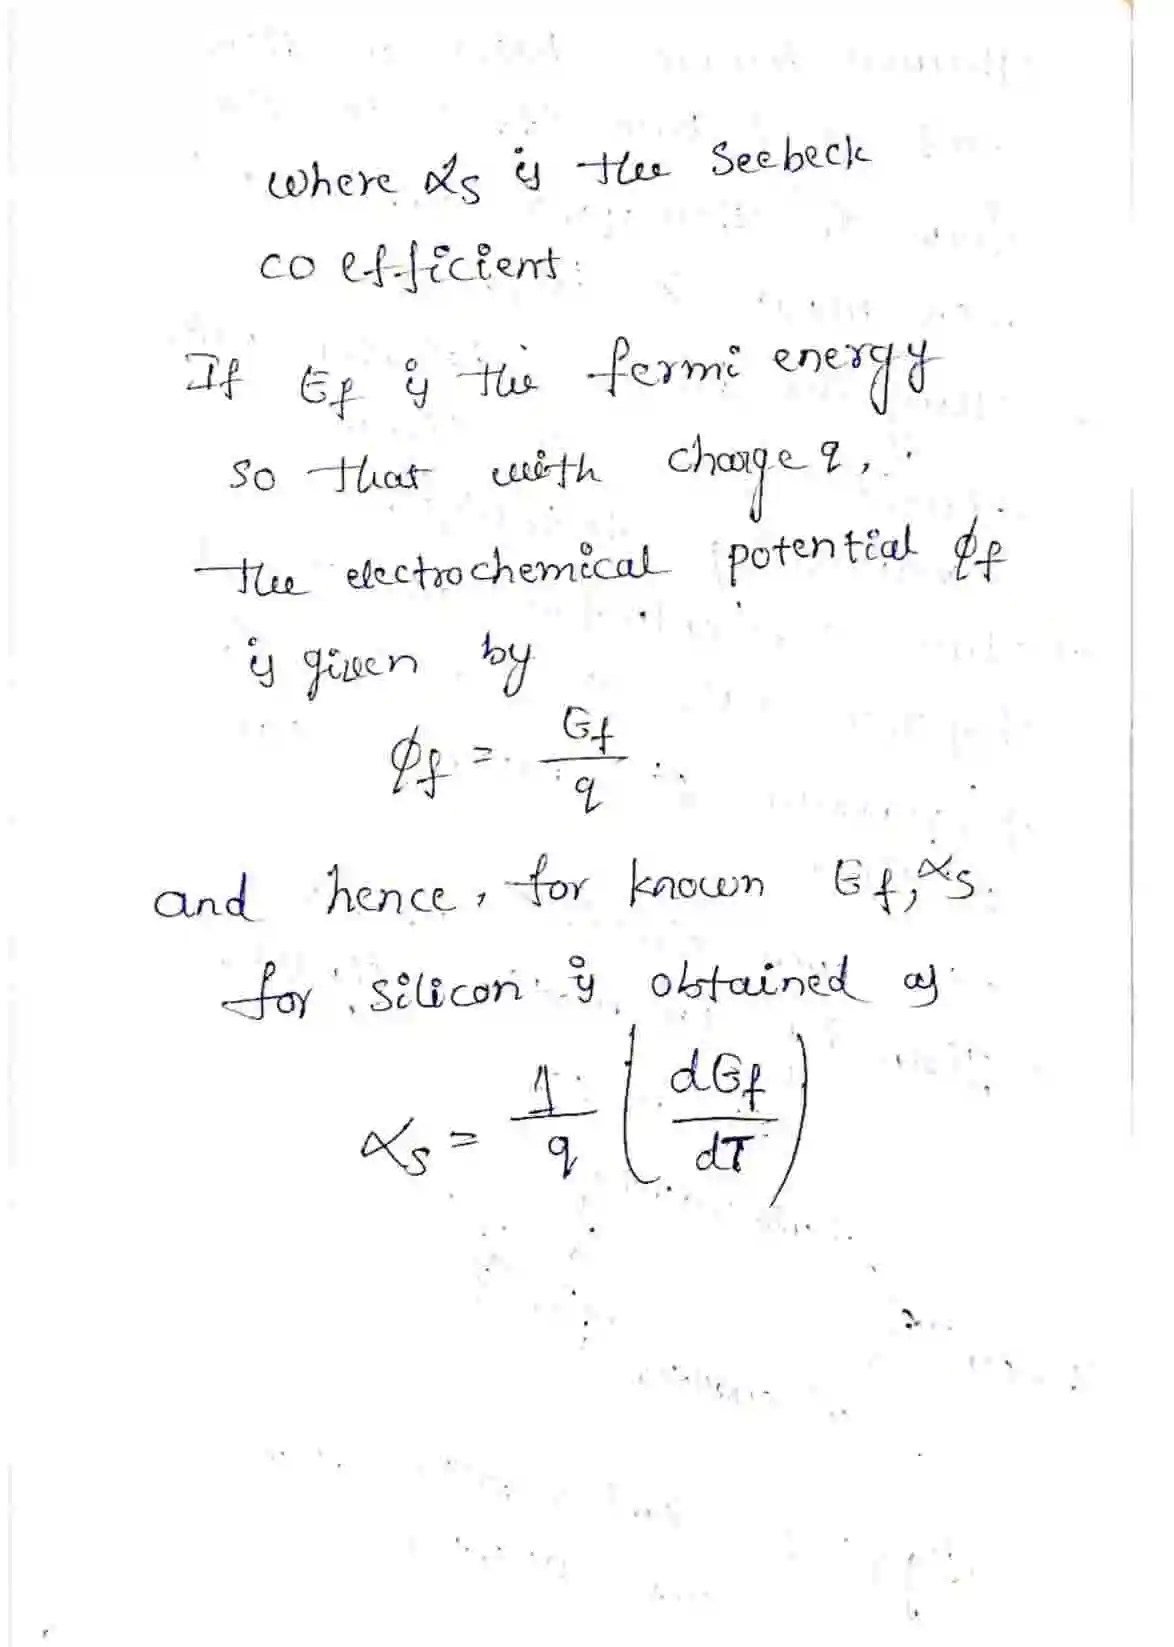 where αs is the Seebeck
co efficient.
If Ef is the fermi energy
so that with charge q,
the electrochemical potential ϕf
is given by
ϕf = Ef / q
and hence, for known Ef, αs
for silicon is obtained as
αs = 1/q (dEf/dT)